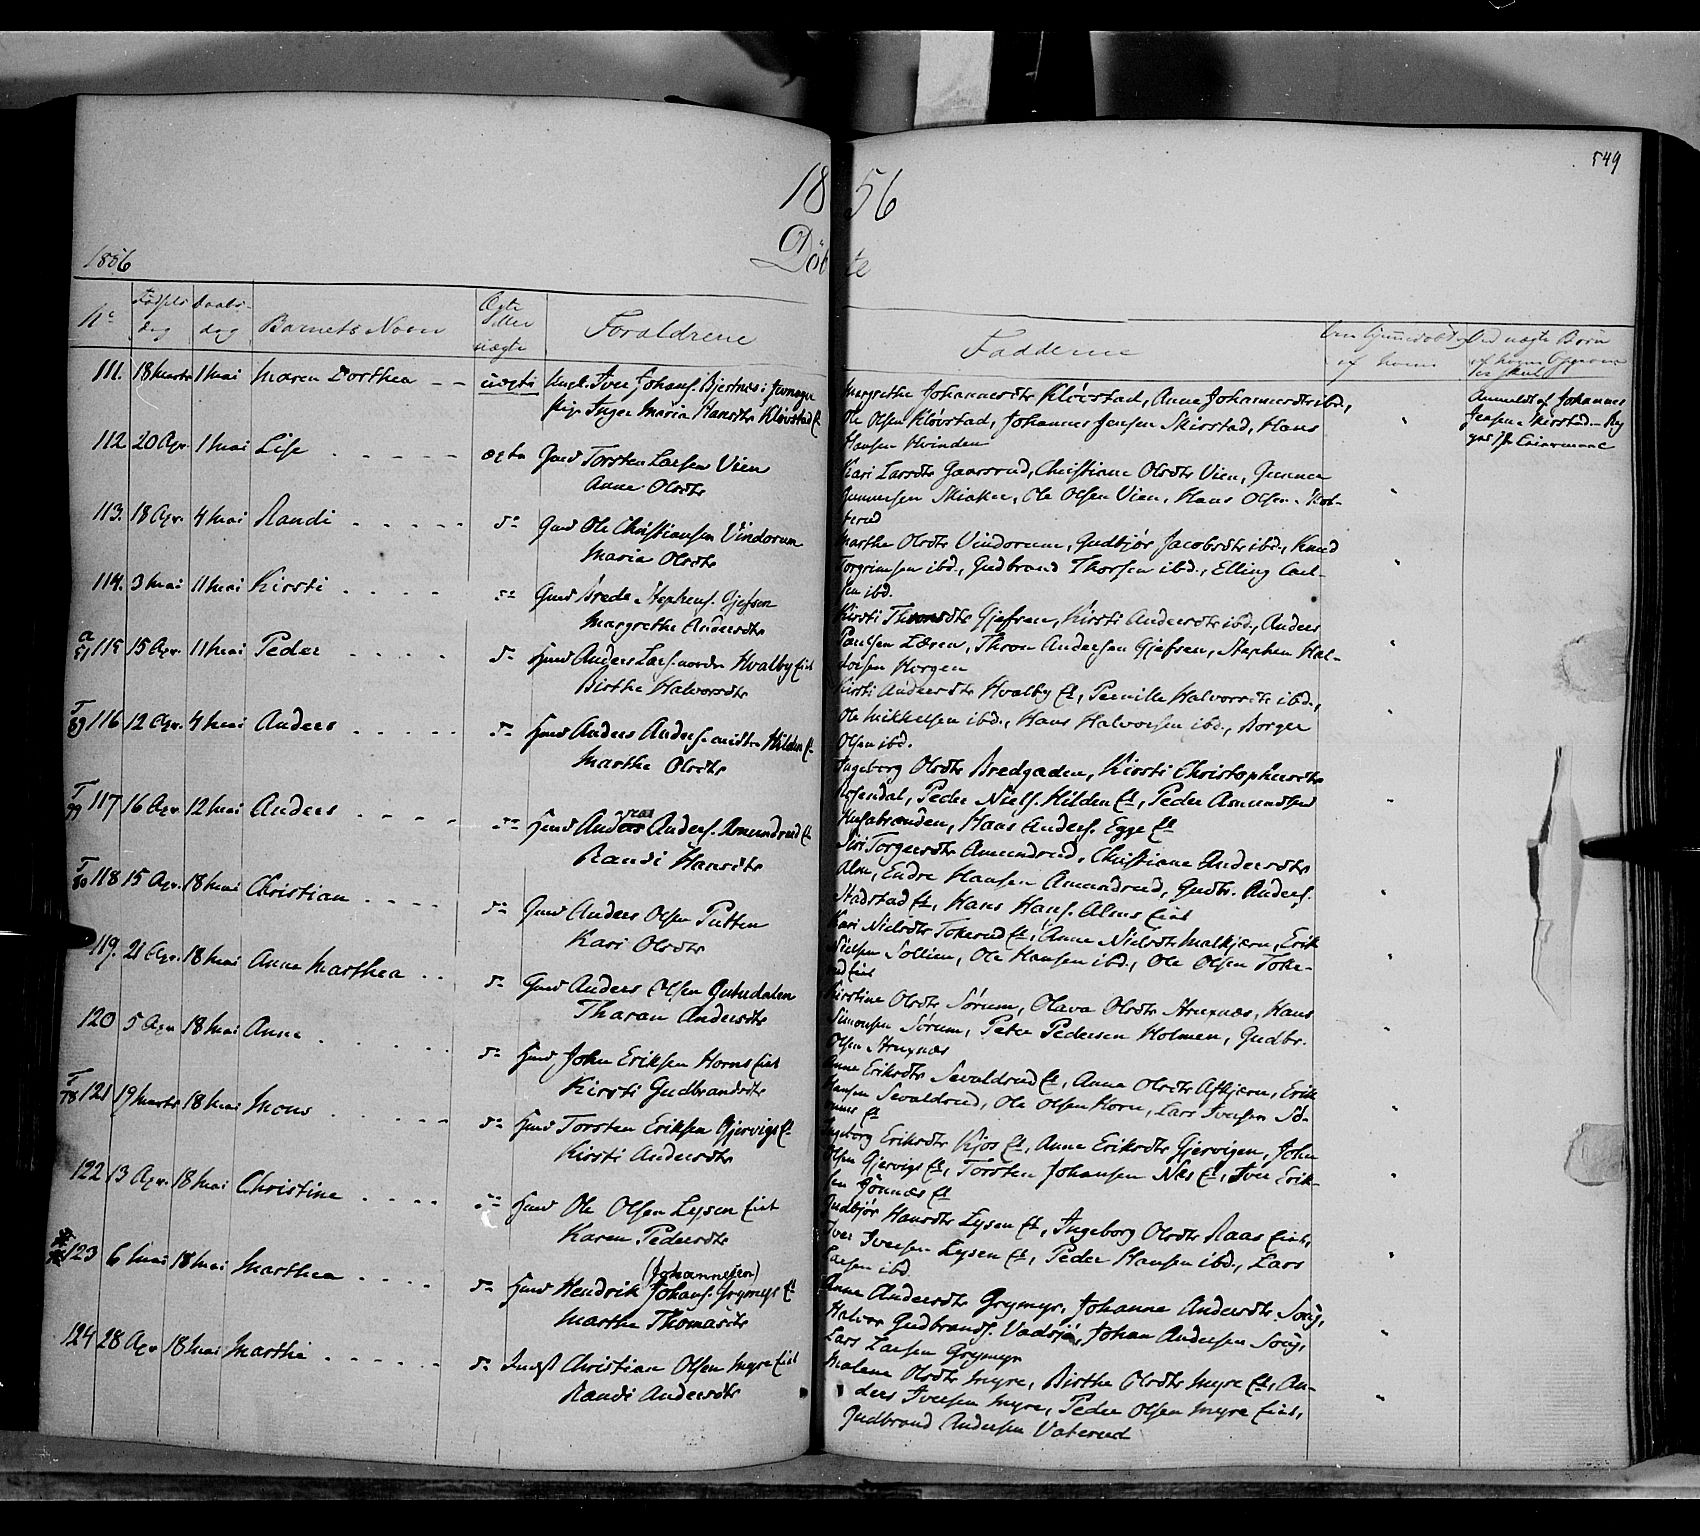 549
18 56
Döbte
1856
No Fødsels dag Daabs dag Barnets Navn Ægte eller uægte Forældrene Fadderne
111. 18 Marts 1 Mai Maren Dorthea - - uægte Ungk. Iver Johans. Bjertnes i Jevnager
Pige Inger Maria Hansdtr Kløvstad Et
Margrethe Johannesdtr Kløvstad, Anne Johannesdtr ibd.,
Ole Olsen Kløvstad, Johannes Jensen Skirstad, Hans
Hansen Hvinden
Anmeldt af Johannes
Jensen Skirstad
112 20 Apr. 1 Mai Lise . . . . . ægte Gmd Torsten Larsen Vien
Anne Olsdtr
Kari Larsdtr Gaarsrud, Christiane Olsdtr Vien, Gunner
Gunnersen Skiaker, Ole Olsen Vien, Hans Olsen
terud
113. 18 Apr. 4 Mai Randi . . . . . do Gmd Ole Christiansen Vindorum
Maria Olsdtr
Marthe Olsdtr Vindorum, Gudbjør Jacobsdtr ibd., Knud
Torgrimsen ibd., Gudbrand Thorsen ibd., Elling Carl-
sen ibd.
114. 3 Mai 11 Mai Kirsti . . . . do Gmd Brede Stephens. Gjefsen
Margrethe Andersdtr
Kirsti Thronsdtr Gjefsen, Kirsti Andersdtr ibd., Anders
Paulsen Læren, Thron Andersen Gjefsen, Stephen Hal-
vorsen Horgen
115 15 Apr. 11 Mai Peder . . . . do Hmd Anders Lars. nordre Hvalby Eiet
Birthe Halvorsdtr
Kirsti Andersdtr Hvalby Et, Pernille Halvorsdtr ibd.,
Ole Mikkelsen ibd., Hans Halvorsen ibd., Borger
Olsen ibd.
T 89 116 12 Apr. 4 Mai Anders . . . . . do Hmd Anders Anders. midtre Hilden Et
Marthe Olsdtr
Ingeborg Olsdtr Bredgaden, Kirsti Christophersdtr
Rosendal, Peder Niels. Hilden Et, Peder Amundsen
Husabrænden, Hans Anders. Egge Et
T 99 117 16 Apr. 12 Mai Anders . . . . do Hmd Andreas Anders. Amundrud Et
Randi Hansdtr
Siri Torgersdtr Amundrud, Christiane Andersdtr
Alm, Endre Hansen Amundrud, Gudbr. Anders.
Stadstad Et, Hans Hans. Alms Eiet
T 80 118 15 Apr. 18 Mai Christian . . . . do Gmd Anders Olsen Putten
Kari Olsdtr
Kari Nielsdtr Tokerud Et, Anne Nielsdtr Malkjern, Erik
Nielsen Sollien, Ole Hansen ibd., Ole Olsen Toke-
rud Eiet
119. 21 Apr. 18 Mai Anne Marthea . . do Gmd Anders Olsen Gutudalen
Tharan Andersdtr
Kirstine Olsdtr Sørum, Olava Olsdtr Struxnæs, Hans
Simonsen Sørum, Peter Pedersen Holmen, Gudbr.
Olsen Struxnæs
120 5 Apr 18 Mai Anne . . . . . do Hmd John Eriksen Horns Eiet
Kirsti Gudbrandsdtr
Anne Eriksdtr Sevaldrud Et, Anne Olsdtr Askjern, Erik
Hansen Sevaldrud, Ole Olsen Horn, Lars Iversen Sø-
rums Et
T 78 121 19 Marts 18 Mai Mons . . . . . do Hmd Torsten Eriksen Gjervigs Et
Kirsti Andersdtr
Ingeborg Eriksdtr Kjos Et, Anne Eriksdtr Gjervigen, John
Olsen Gjervigs Et, Torsten Johansen Næs Et, Iver Erik-
sen Hønnæs Et
122 13 Apr. 18 Mai Christine . . . . do Hmd Ole Olsen Lysen Eiet
Karen Pedersdtr
Gudbjør Hansdtr Lysen Et, Ingeborg Olsdtr Raas Eiet,
Iver Iversen Lysen Et, Peder Hansen ibd., Lars
Larsen ibd.
123 6 Mai 18 Mai Marthea . . . . do Hmd Hendrik Johans. (Johannesen) Grymyr Et
Marthe Thomasdtr
Anne Andersdtr Grymyr, Johanne Andersdtr Sorig,
Halvor Gudbrands. Vadsjø, Johan Andersen Sorig,
Lars Larsen Grymyr
124 28 Apr 18 Mai Marthe . . . . . do Indst Christian Olsen Myre Eiet
Randi Andersdtr
Malene Olsdtr Myre, Birthe Olsdtr Myre Et, An-
ders Iversen Myre, Peder Olsen Myre Eiet,
Gudbrand Andersen Vaterud